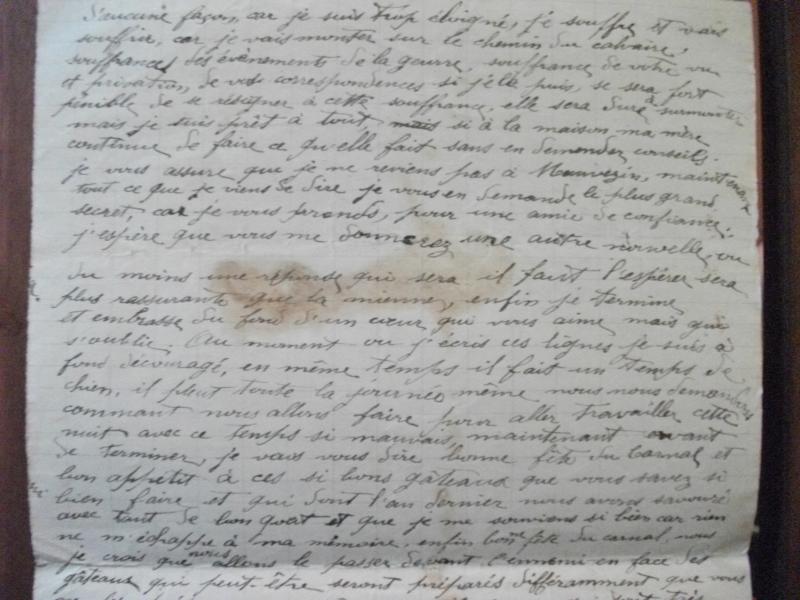 d'aucune façon, car je suis trop éloigné, je souffre et vais
souffrir, car je vais monter sur le chemin du calvaire,
souffrances des évènements de la guerre, souffrance de votre vu
et privation, de vos correspondences si j'elle puis, se sera fort
pénible de se résigner à cette souffrance, elle sera dure à surmonter
mais je suis prêt à tout, mais si à la maison ma mère
continue de faire ce qu'elle fait sans en demander conseils.
je vous assure que je ne reviens pas à Mauvezin, maintenant
tout ce que je viens de dire je vous en demande le plus grand
secret, car je vous prends, pour une amie de confiance.
j'espère que vous me donnerez une autre nouvelle, ou
du moins une réponse qui sera il faut l'espérer sera
plus rassurante que la mienne, enfin je termine
et embrasse du fond d'un cœur qui vous aime mais qui
s'oublie. Au moment ou j'écris ces lignes je suis à
fond découragé, en même temps il fait un temps de
chien, il pleut toute la journée même nous nous demandons
commant nous allons faire pour aller travailler cette
nuit avec ce temps si mauvais, maintenant avant
de terminer, je vais vous dire bonne fête du Carnal et
bon appétit à ces si bons gâteaux que vous savez si
bien faire et qui dont l'an dernier nous avons savouré
avec tant de bon goat et que je me souviens si bien car rien
ne m'échappe à ma mémoire, enfin bonne fête du carnal, nous
je crois que nous allons le passer devant l'ennemi en face des
gâteaux qui peut-être seront préparés différamment que vous